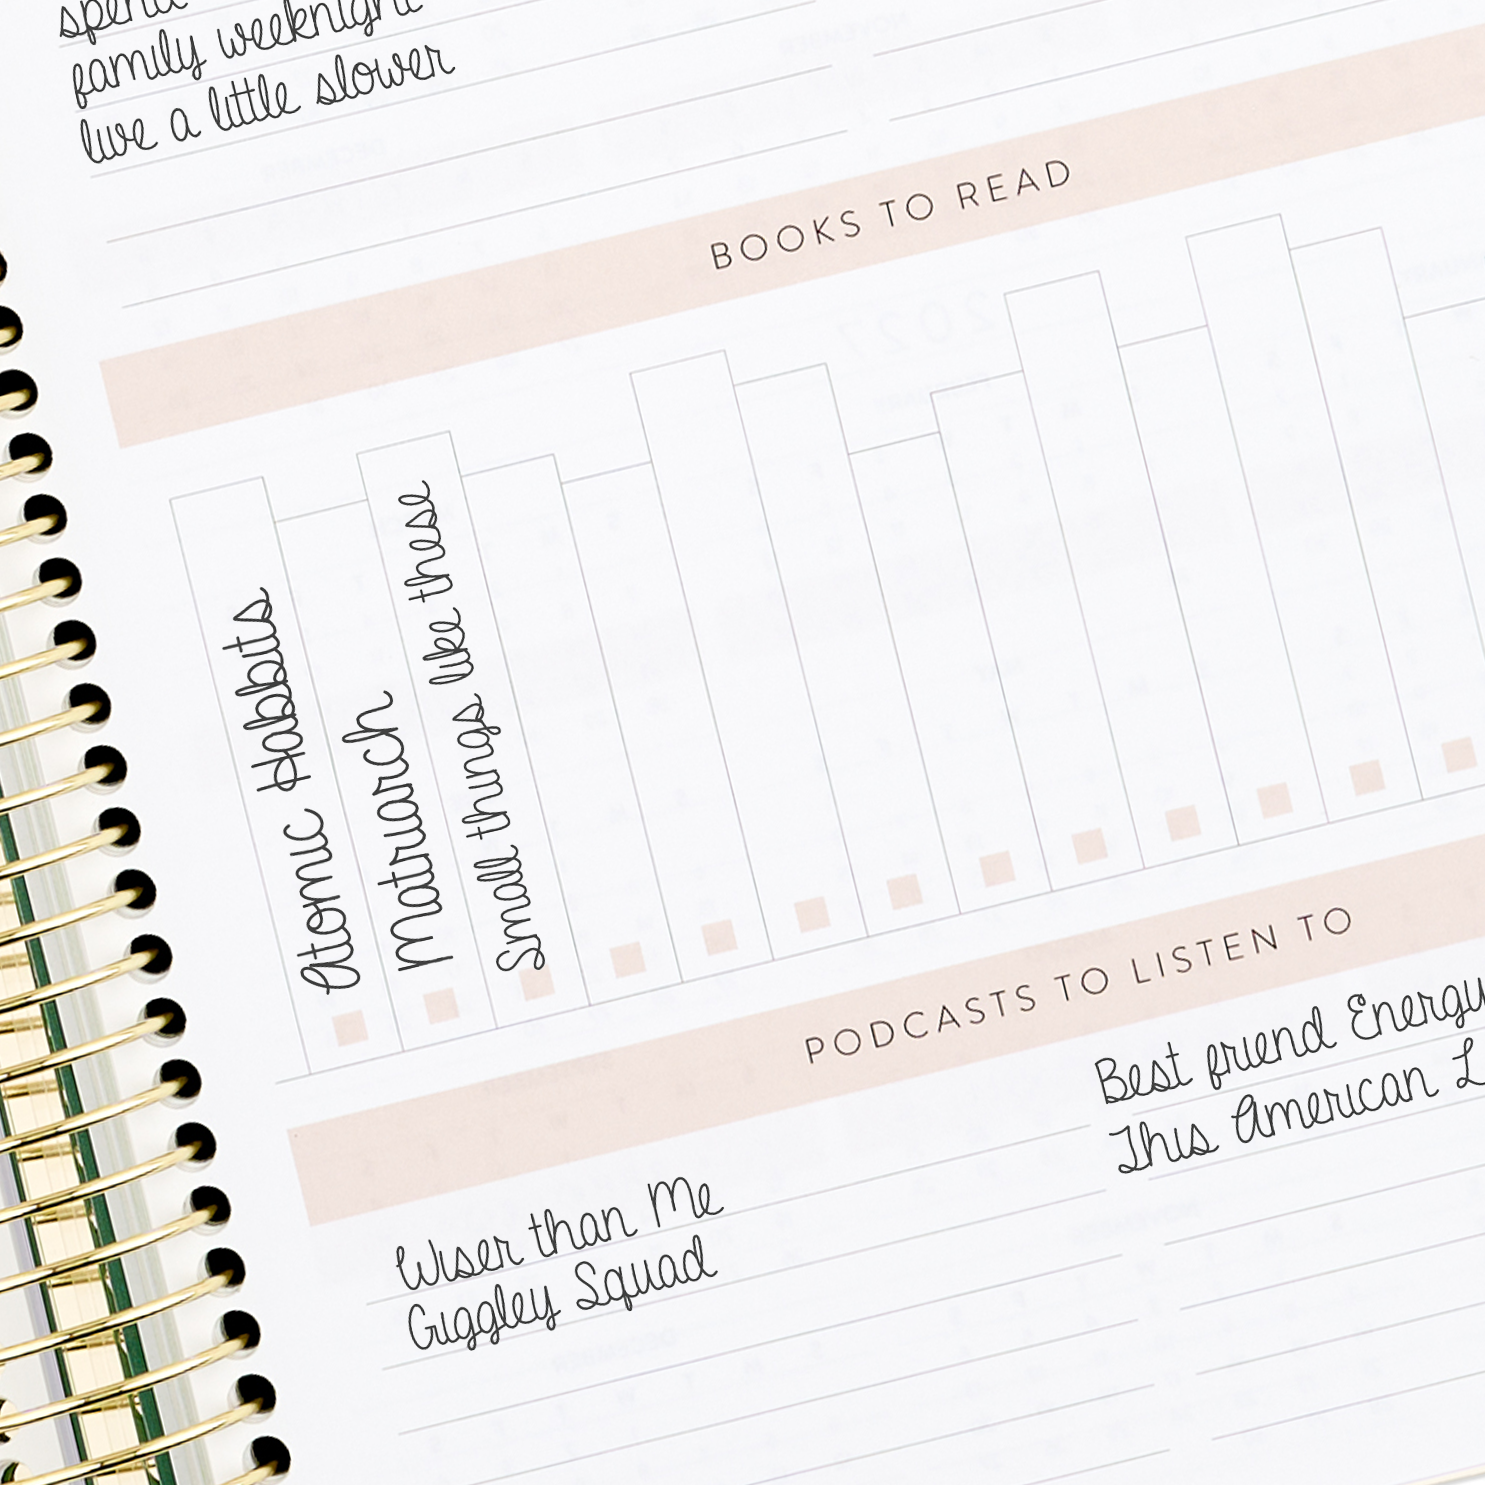 spend
family weeknight
live a little slower
BOOKS TO READ
Atomic Habbits
Matriarch
Small things like these
PODCASTS TO LISTEN TO
Wiser than Me
Giggley Squad
Best friend Energy
This American L